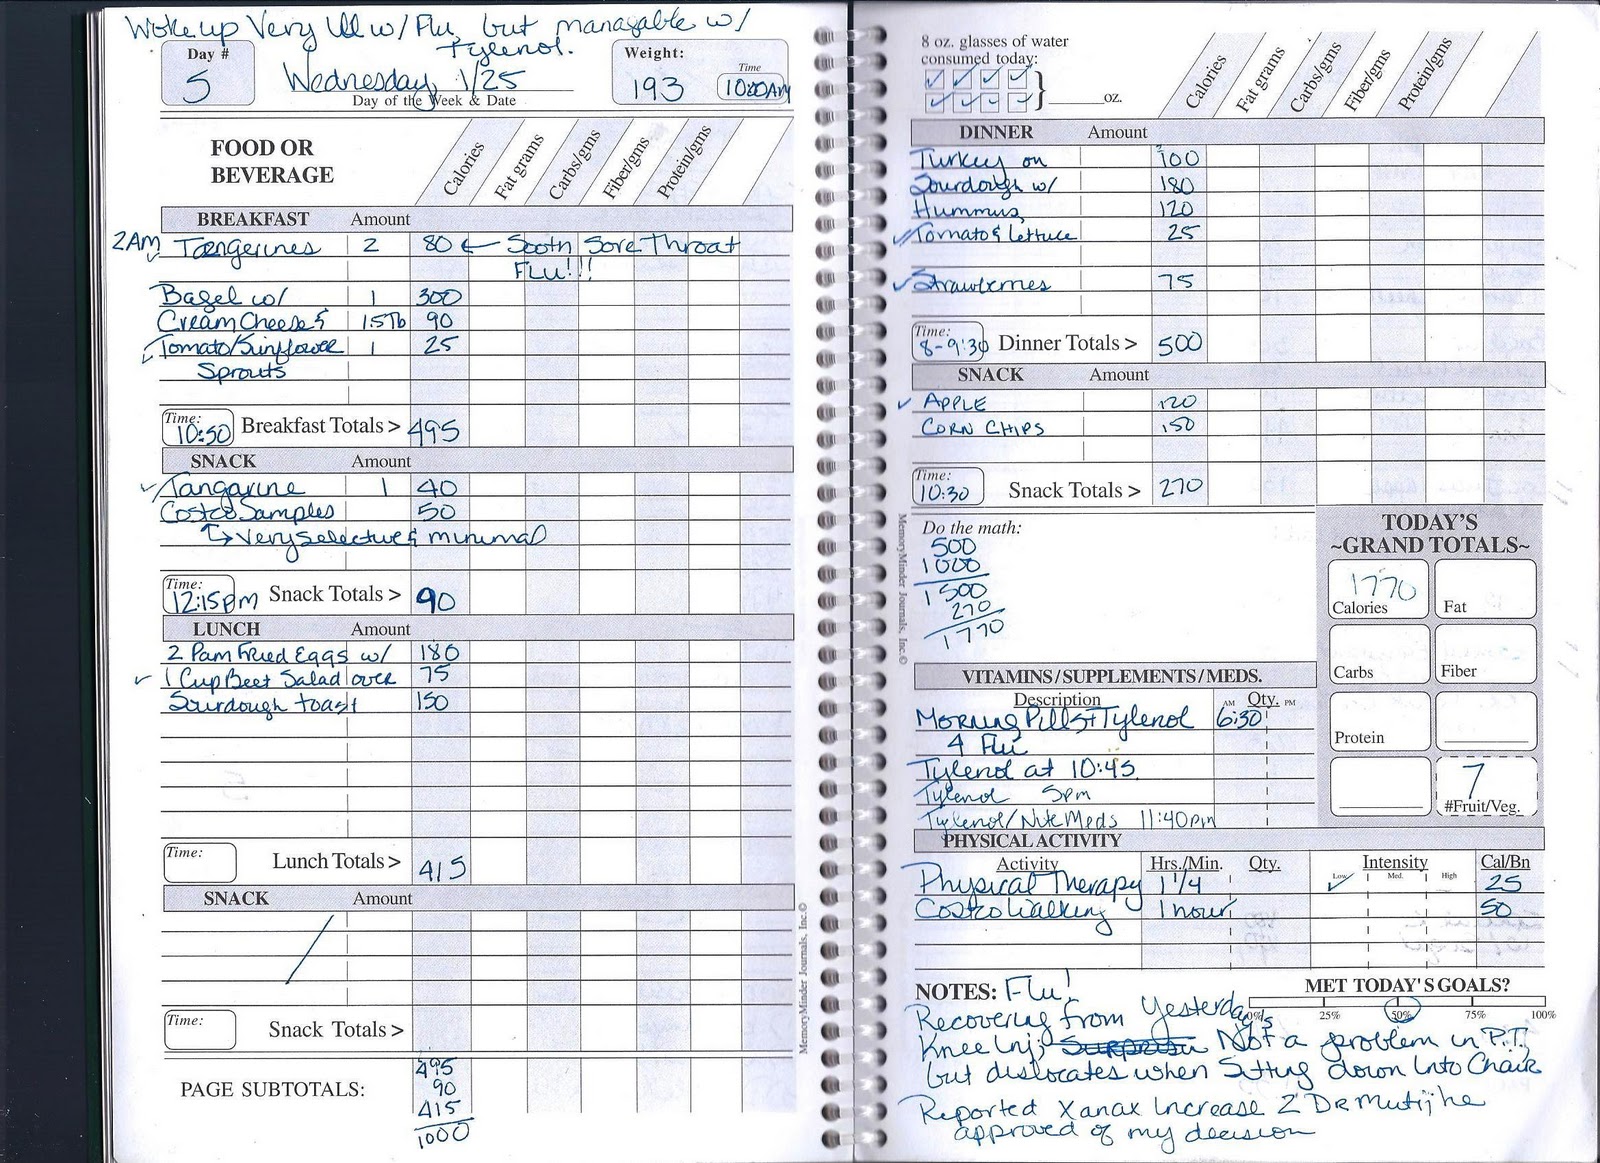 Woke up Very Ill w/ Flu, but managable w/
Tylenol.
Day #
5
Wednesday, 1/25
Day of the Week & Date
Weight:
193
Time
10:00AM
FOOD OR
BEVERAGE
Calories
Fat grams
Carbs/gms
Fiber/gms
Protein/gms
BREAKFAST Amount
2AM Tangerines 2 80 ← Sooth Sore Throat
FLU!!!
Bagel w/ 1 300
Cream Cheese & 1.5Tb 90
Tomato/Sunflower 1 25
Sprouts
Time:
10:50 Breakfast Totals > 495
SNACK Amount
Tangarine 1 40
Costco Samples 50
↳ Very selective & minimal
Time:
12:15pm Snack Totals > 90
LUNCH Amount
2 Pam Fried Eggs w/ 180
1 Cup Beet Salad over 75
Sourdough toast 150
Time:
Lunch Totals > 415
SNACK Amount
Time:
Snack Totals >
PAGE SUBTOTALS:
495
90
415
1000
MemoryMinder Journals, Inc.©
8 oz. glasses of water
consumed today:
oz.
Calories
Fat grams
Carbs/gms
Fiber/gms
Protein/gms
DINNER Amount
Turkey on 100
Sourdough w/ 180
Hummus, 120
Tomato & Lettuce 25
Strawberries 75
Time:
8-9:30 Dinner Totals > 500
SNACK Amount
APPLE 120
CORN CHIPS 150
Time:
10:30 Snack Totals > 270
MemoryMinder Journals, Inc.©
Do the math:
500
1000
1500
270
1770
TODAY'S
~GRAND TOTALS~
1770
Calories
Fat
Carbs
Fiber
Protein
7
#Fruit/Veg.
VITAMINS/SUPPLEMENTS/MEDS.
Description AM Qty. PM
Morning Pills + Tylenol 6:30
4 Flu
Tylenol at 10:45
Tylenol 5pm
Tylenol/Nite Meds 11:40pm
PHYSICAL ACTIVITY
Activity Hrs./Min. Qty. Intensity Cal/Bn
Low Med. High
Physical Therapy 1 1/4 25
Costco Walking 1 hour 50
NOTES: Flu!
MET TODAY'S GOALS?
0% 25% 50% 75% 100%
Recovering from Yesterday's
Knee Inj; Not a problem in P.T.
but dislocates when Sitting down Into Chair
Reported Xanax Increase 2 Dr Mutij he
approved of my decision